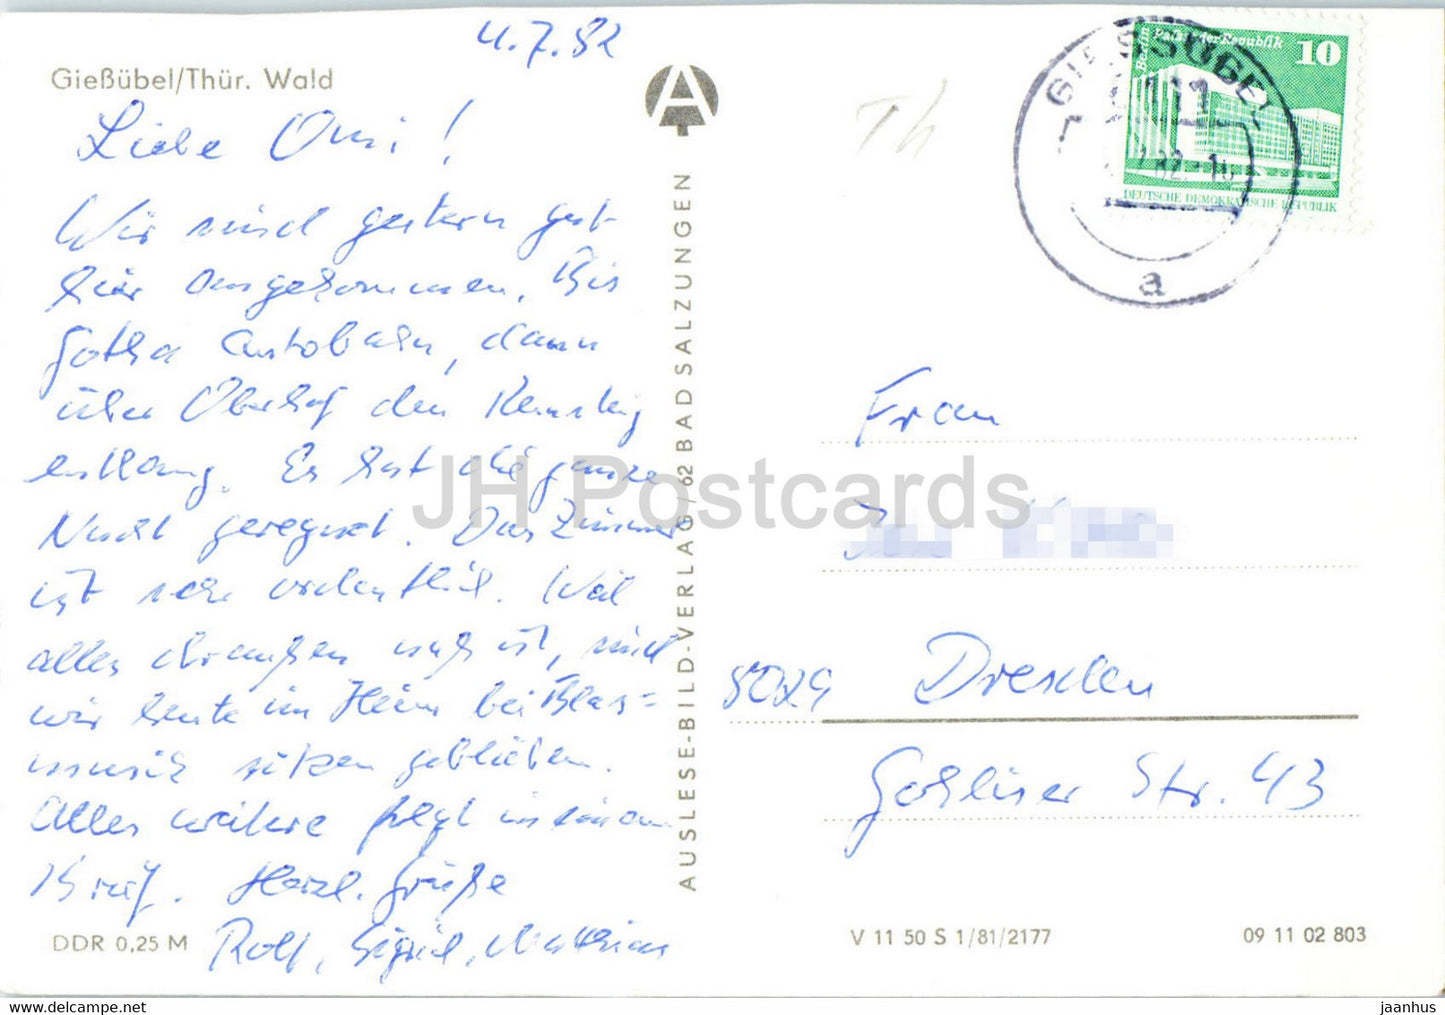 4.7.82
Gießübel/Thür. Wald
Liebe Omi!
Wir sind gestern gut
hier angekommen. Bis
Gotha Autobahn, dann
über Oberhof den Rennsteig
entlang. Es hat die ganze
Nacht geregnet. Das Zimmer
ist sehr ordentlich. Weil
alles draußen naß ist, sind
wir heute im Heim bei Blas=
musik sitzen geblieben.
Alles weitere folgt in einem
Brief. Herzl. Grüße
Rolf, Sigrid, Matthias
DDR 0,25 M
AUSLESE-BILD-VERLAG / 62 BAD SALZUNGEN
A
Th
Berlin Palast der Republik 10
DEUTSCHE DEMOKRATISCHE REPUBLIK
GIESSÜBEL
82.-16
a
Frau
8029 Dresden
Gohliser Str. 43
V 11 50 S 1/81/2177
09 11 02 803
JH Postcards
https://www.ebay.com/str/jhpostcards
jaanhus